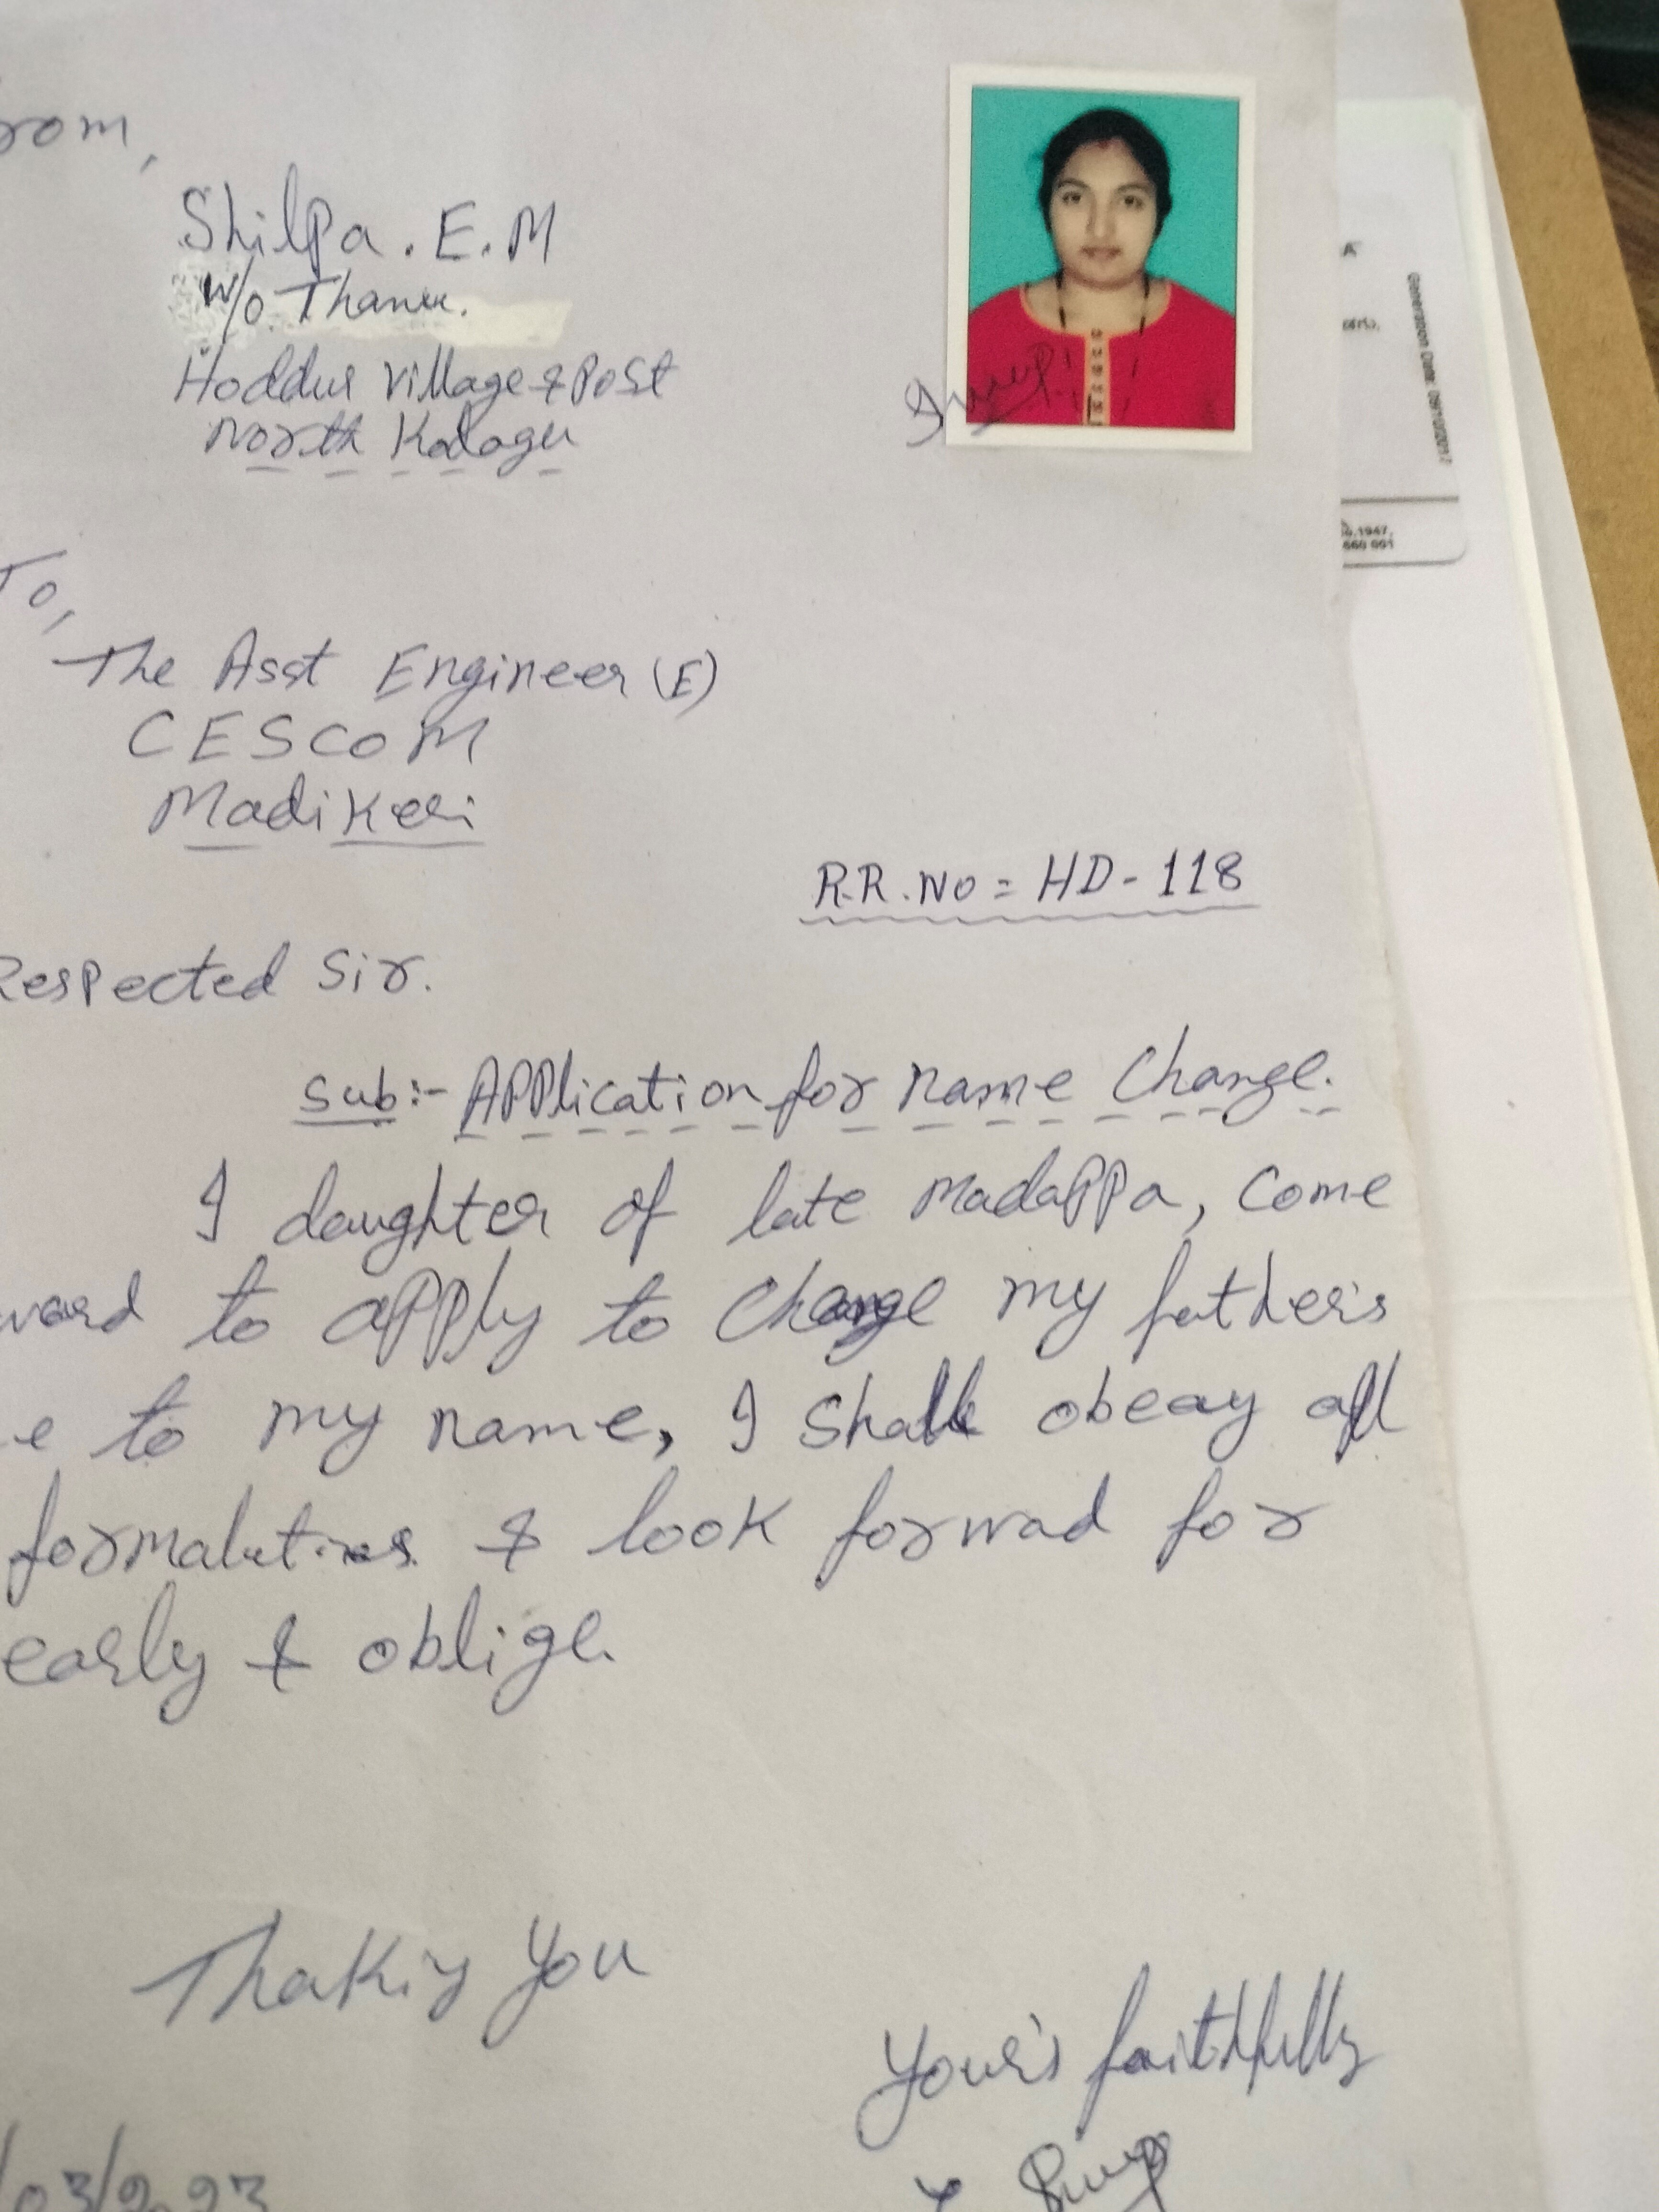 rom,
Shilpa . E. M
W/o. Thanu.
Hoddur village & Post
North Kodagu
To,
The Asst Engineer (E)
CESCOM
Madikeri
R.R. No = HD - 118
Respected Sir.
Sub:- Application for name Change.
I daughter of late Madappa, Come
ward to apply to Change my father's
e to my name, I shall obeay all
formaluties & look forwad for
early & oblige.
Thakiy You
Your's faithfully
/03/2023
Generation Date:
1947,
560 001